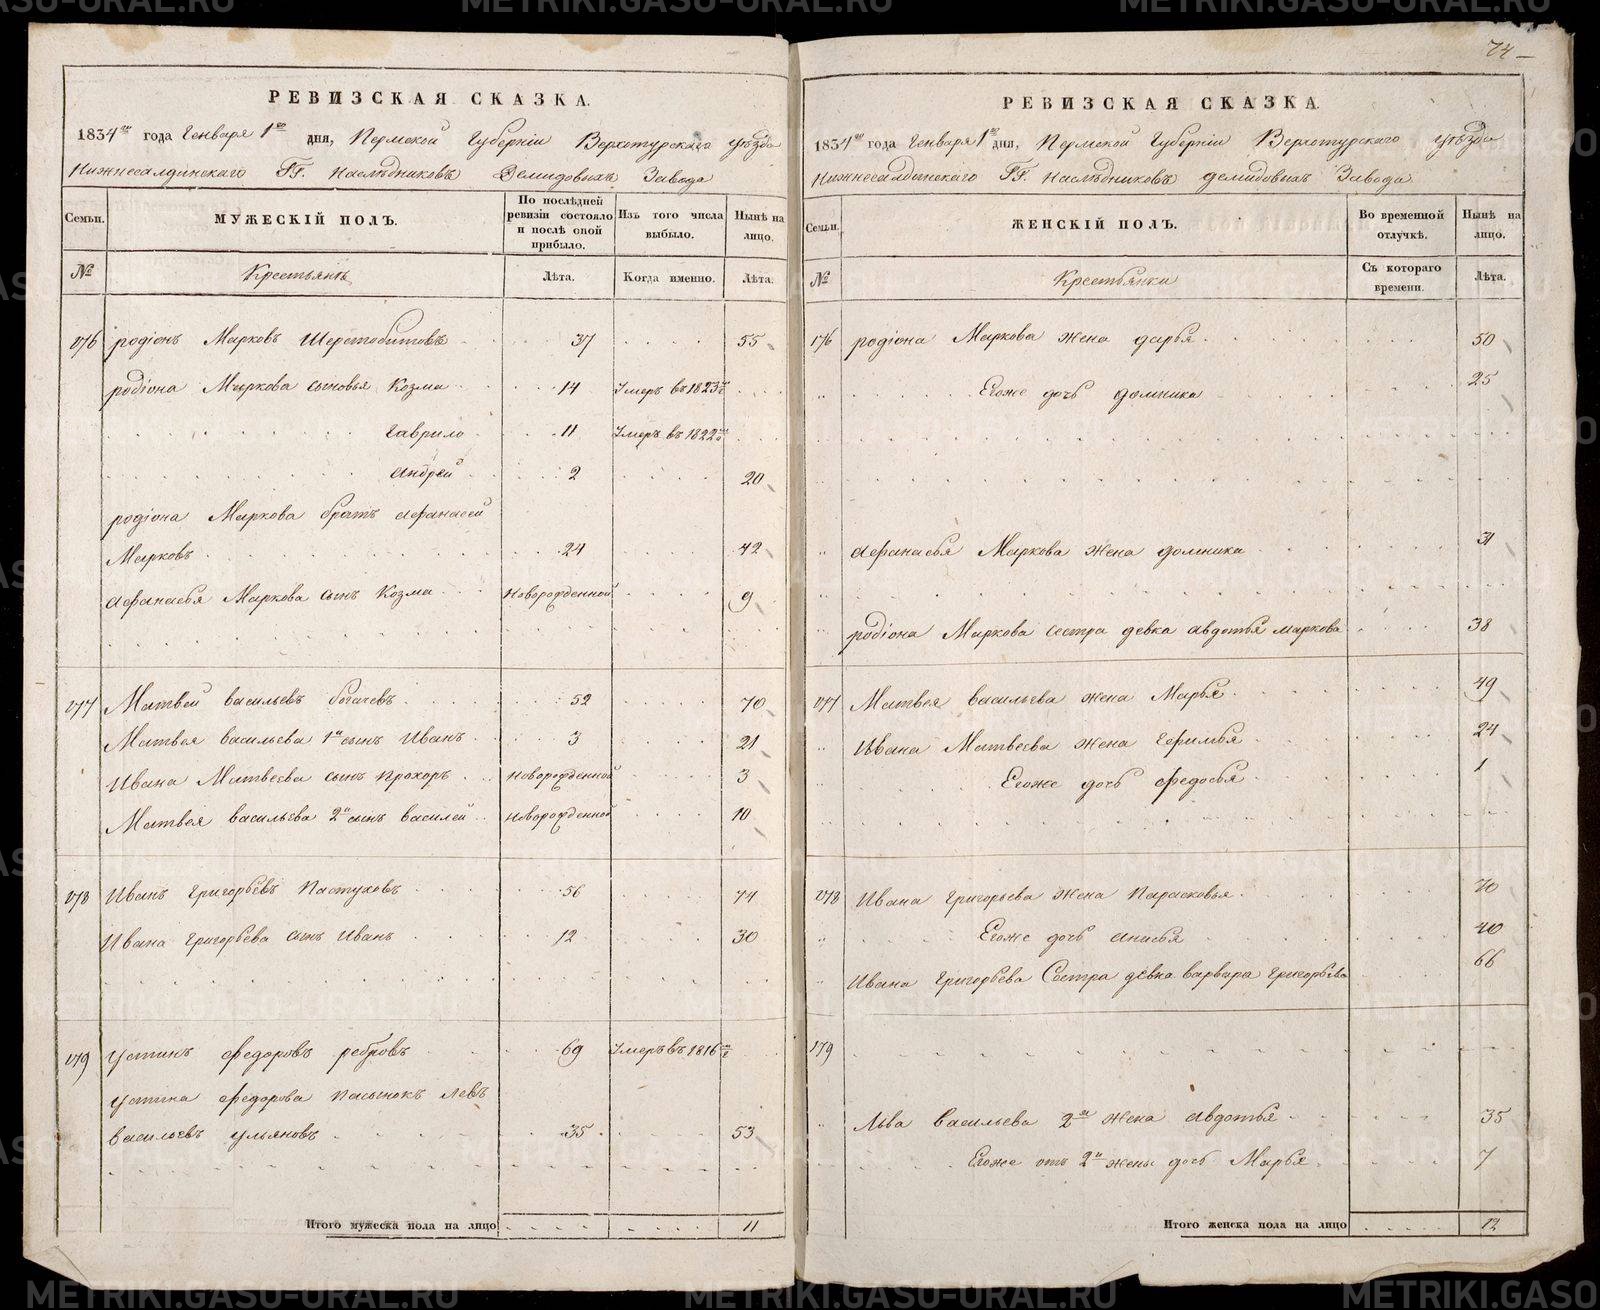 74
РЕВИЗСКАЯ СКАЗКА.
1834го года Генваря 1го дня, Пермской Губерніи Верхотурскаго уѣзда
Нижнесалдинскаго ГГ. Наслѣдниковъ Демидовыхъ Завода
Семьи. МУЖЕСКІЙ ПОЛЪ. По послѣдней ревизіи состояло и послѣ оной прибыло. Изъ того числа выбыло. Нынѣ на лицо.
№ Крестьянъ Лѣта. Когда именно. Лѣта.
176 родіонъ Марковъ Шерстобитовъ 37 55
родіона Маркова сыновья Козма 14 Умеръ въ 1823м г.
Гаврило 11 Умеръ въ 1822м г.
Андрей 2 20
родіона Маркова братъ Афанасей
Марковъ 24 42
Афанасья Маркова сынъ Козма Новорожденной 9
177 Матвей васильевъ богачевъ 52 70
Матвея васильева 1й сынъ Иванъ 3 21
Ивана Матвеева сынъ прохоръ Новорожденной 3
Матвея васильева 2й сынъ василей Новорожденной 10
178 Иванъ григорьевъ Пастуховъ 56 74
Ивана григорьева сынъ Иванъ 12 30
179 устинъ федоровъ ребровъ 69 Умеръ въ 1816м г.
устина федорова Пасынокъ Левъ
васильевъ ульяновъ 35 53
Итого мужеска пола на лицо 11
РЕВИЗСКАЯ СКАЗКА.
1834го года Генваря 1го дня, Пермской Губерніи Верхотурскаго уѣзда
Нижнесалдинскаго ГГ. наслѣдниковъ демидовыхъ Завода
Семьи. ЖЕНСКІЙ ПОЛЪ. Во временной отлучкѣ. Нынѣ на лицо.
№ Крестьянки Съ котораго времени. Лѣта.
176 родіона Маркова жена дарья 50
Егоже дочь домника 25
Афанасья Маркова жена домника 31
родіона Маркова сестра девка авдотья маркова 38
177 Матвея васильева жена Марья 49
Ивана Матвеева жена 24
Егоже дочь федосья 1
178 Ивана григорьева жена Парасковья 70
Егоже дочь анисья 40
Ивана григорьева Сестра девка варвара григорьева 66
179
Льва васильева 2я жена авдотья 35
Егоже отъ 2й жены дочь Марья 7
Итого женска пола на лицо 12
METRIKI.GASO-URAL.RU